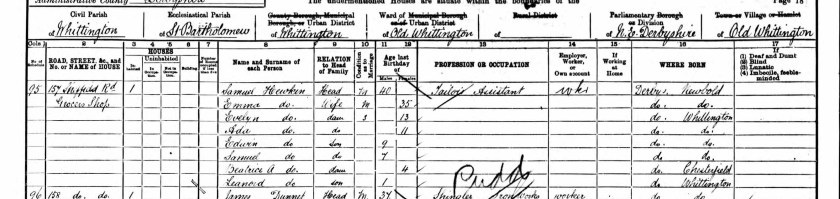 Administrative County
The undermentioned Houses are situate within the boundaries of the
Page 18
Civil Parish
of Whittington
Ecclesiastical Parish
of St Bartholomew
County Borough, Municipal Borough or Urban District
of Whittington
Ward of Municipal Borough or Urban District
of Old Whittington
Rural District
of
Parliamentary Borough or Division
of N.E. Derbyshire
Town or Village or Hamlet
of Old Whittington
Cols. 1 2 3 4 5 6 7 8 9 10 11 12 13 14 15 16 17
No. of
ROAD, STREET, &c., and No. or NAME of HOUSE
HOUSES
Inhabited
Uninhabited
In Occupation
Not in Occupation
Building
Name and Surname of each Person
RELATION to Head of Family
Condition as to Marriage
Age last Birthday of
Males
Females
PROFESSION OR OCCUPATION
Employer, Worker, or Own account
If Working at Home
WHERE BORN
If
(1) Deaf and Dumb
(2) Blind
(3) Lunatic
(4) Imbecile, feeble-minded
95 157 Sheffield Rd 1 Samuel Hewkin Head M 40 Tailors Assistant wkr Derbys. Newbold
Grocers Shop Emma do. Wife M 35 do. do.
Evelyn do. daur S 13 do. Whittington
Ada do do 11 do. do.
Edwin do son 9 do. do
Samuel do do 7 do. do
Beatrice A do daur 4 do. Chesterfield
Leonard do son 1 do Whittington
96 158 do. do. 1 James Head M. 37 Shingler Ironworks worker do. do.